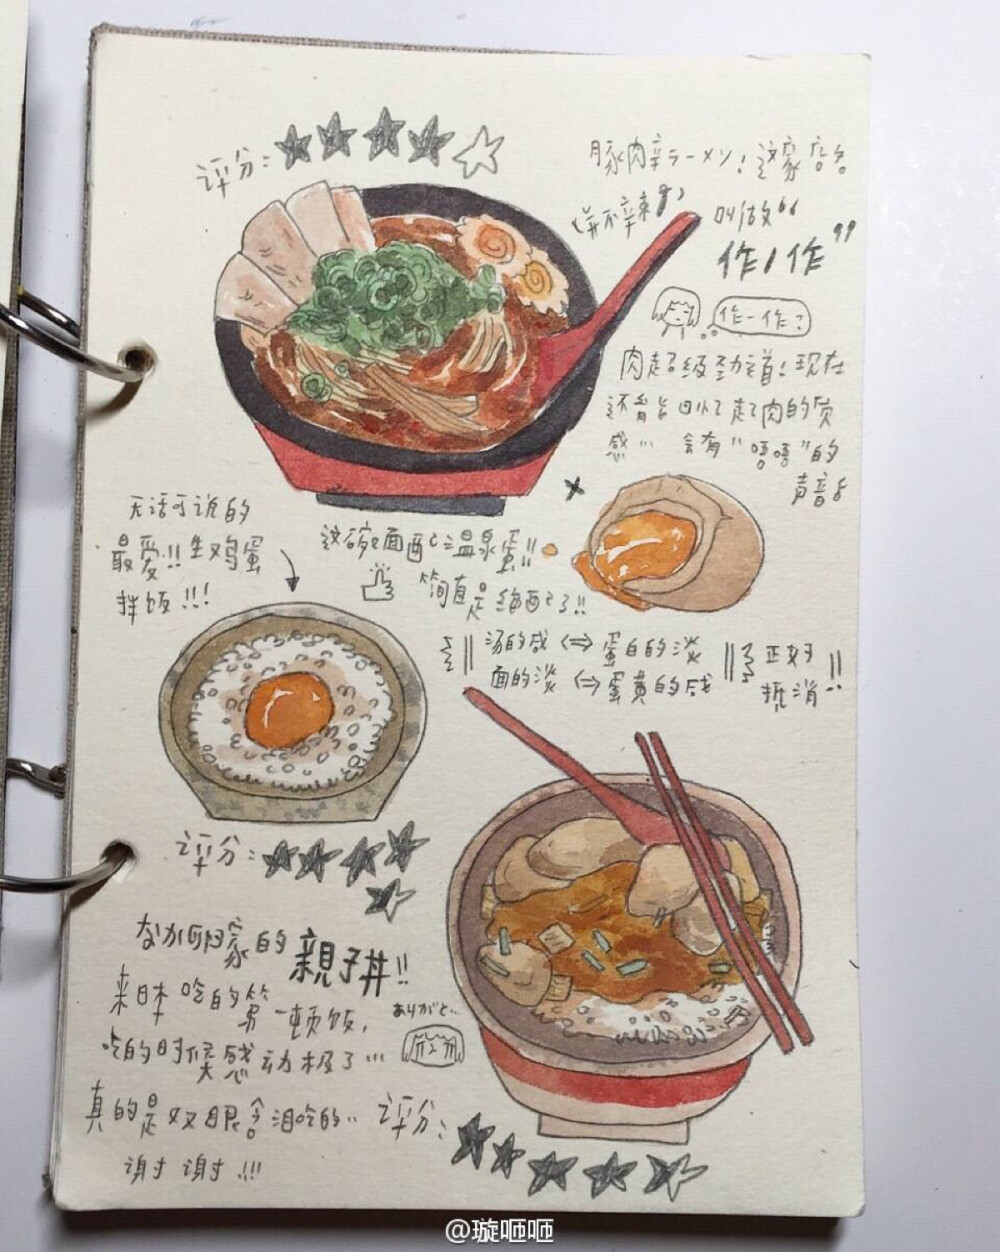 评分：
豚肉辛ラーメン！这家店名
（并不辣）
叫做“
作ノ作”
作一作？
肉超级劲道！现在
还能回忆起肉的质
感… 会有“唔唔”的
声音
这碗面配上温泉蛋!!
简直是绝配了!!
汤的咸⇔蛋白的淡
面的淡⇔蛋黄的咸
正好
抵消!!
无话可说的
最爱!!生鸡蛋
拌饭!!!
评分：
なか卯家的
親子丼!!
来日本吃的第一顿饭，
吃的时候感动极了…
ありがと…
真的是双眼含泪吃的…
谢谢!!!
评分：
@璇咂咂